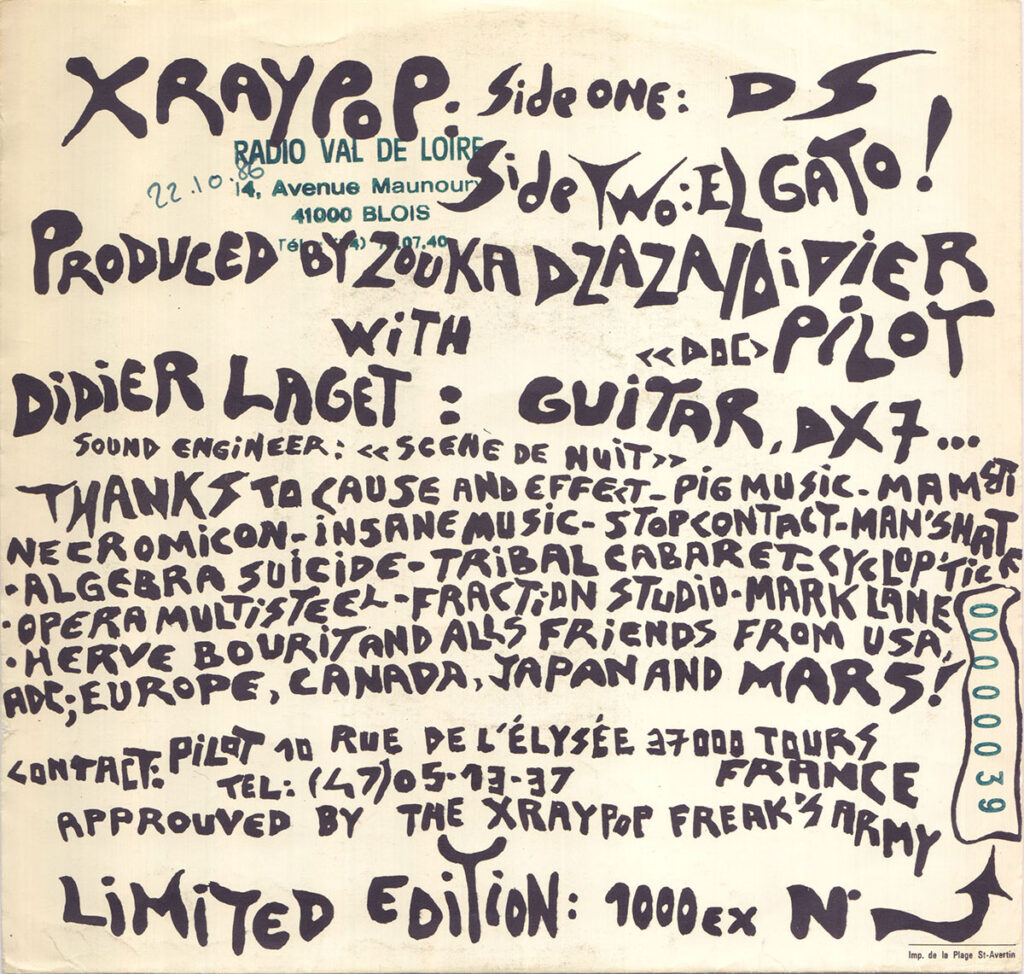 XRAYPOP: Side ONE: DS
RADIO VAL DE LOIRE
22.10.86
14, Avenue Maunoury
41000 BLOIS
Side TWO: EL GATO!
PRODUCED BY ZOUKA DZAZA/DiDiER
WiTH
<<DOC> PiLOT
DiDiER LAGET : GUiTAR, DX7...
SOUND ENGiNEER: <<SCENE DE NUiT>>
THANKS TO CAUSE AND EFFECT_ PIG MUSIC. MAM
NECROMICON-iNSANE MUSIC-STOPCONTACT-MAN'S HATE
.ALGEBRA SUICIDE-TRIBAL CABARET-CYCLOP'TICK
.OPERA MULTISTEEL-FRACTiON STUDIO.MARK LANE
.HERVE BOURIT AND ALLS FRIENDS FROM USA,
ADC; EUROPE, CANADA, JAPAN AND MARS!
00000039
CONTACT: PILOT 10 RUE DE L'ÉLYSÉE 37000 TOURS
TEL: (47)05-13-37 FRANCE
APPROUVED BY THE XRAYPOP FREAK'S ARMY
LiMiTED EDiTiON: 1000EX N°
Imp. de la Plage St-Avertin